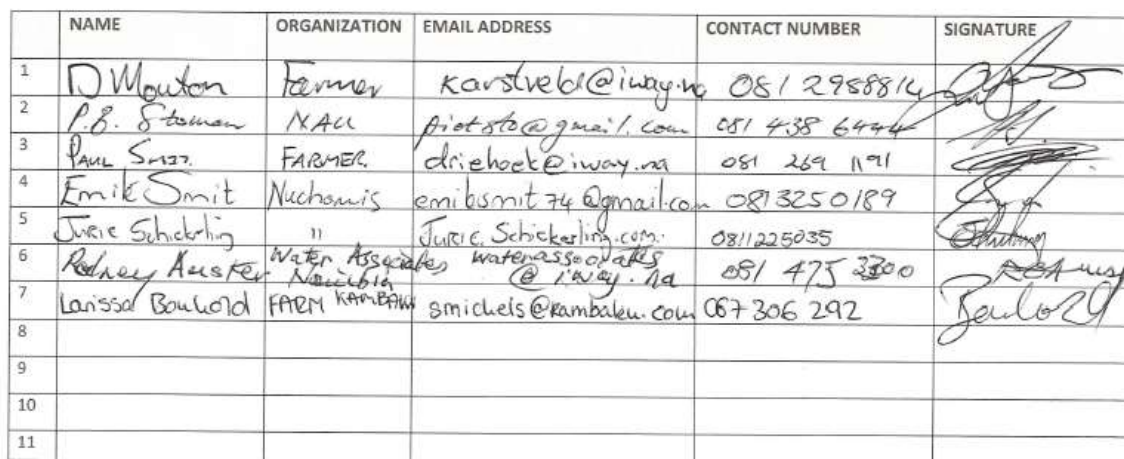 NAME ORGANIZATION EMAIL ADDRESS CONTACT NUMBER SIGNATURE
1 D Mouton Farmer karstveld@iway.na 081 2988814
2 P.B. NAU pietsto@gmail.com 081 438 6444
3 PAUL SMIT. FARMER. driehoek@iway.na 081 269 1191
4 Emile Smit Nuchomis emilesmit74@gmail.com 0813250189
5 Jurie Schickerling " Jurie.Schickerling.com. 0811225035
6 Rodney Water Associates Namibia waterassociates @iway.na 081 475
7 Larissa FARM KAMBAKU smichels@kambaku.com 067 306 292
8
9
10
11